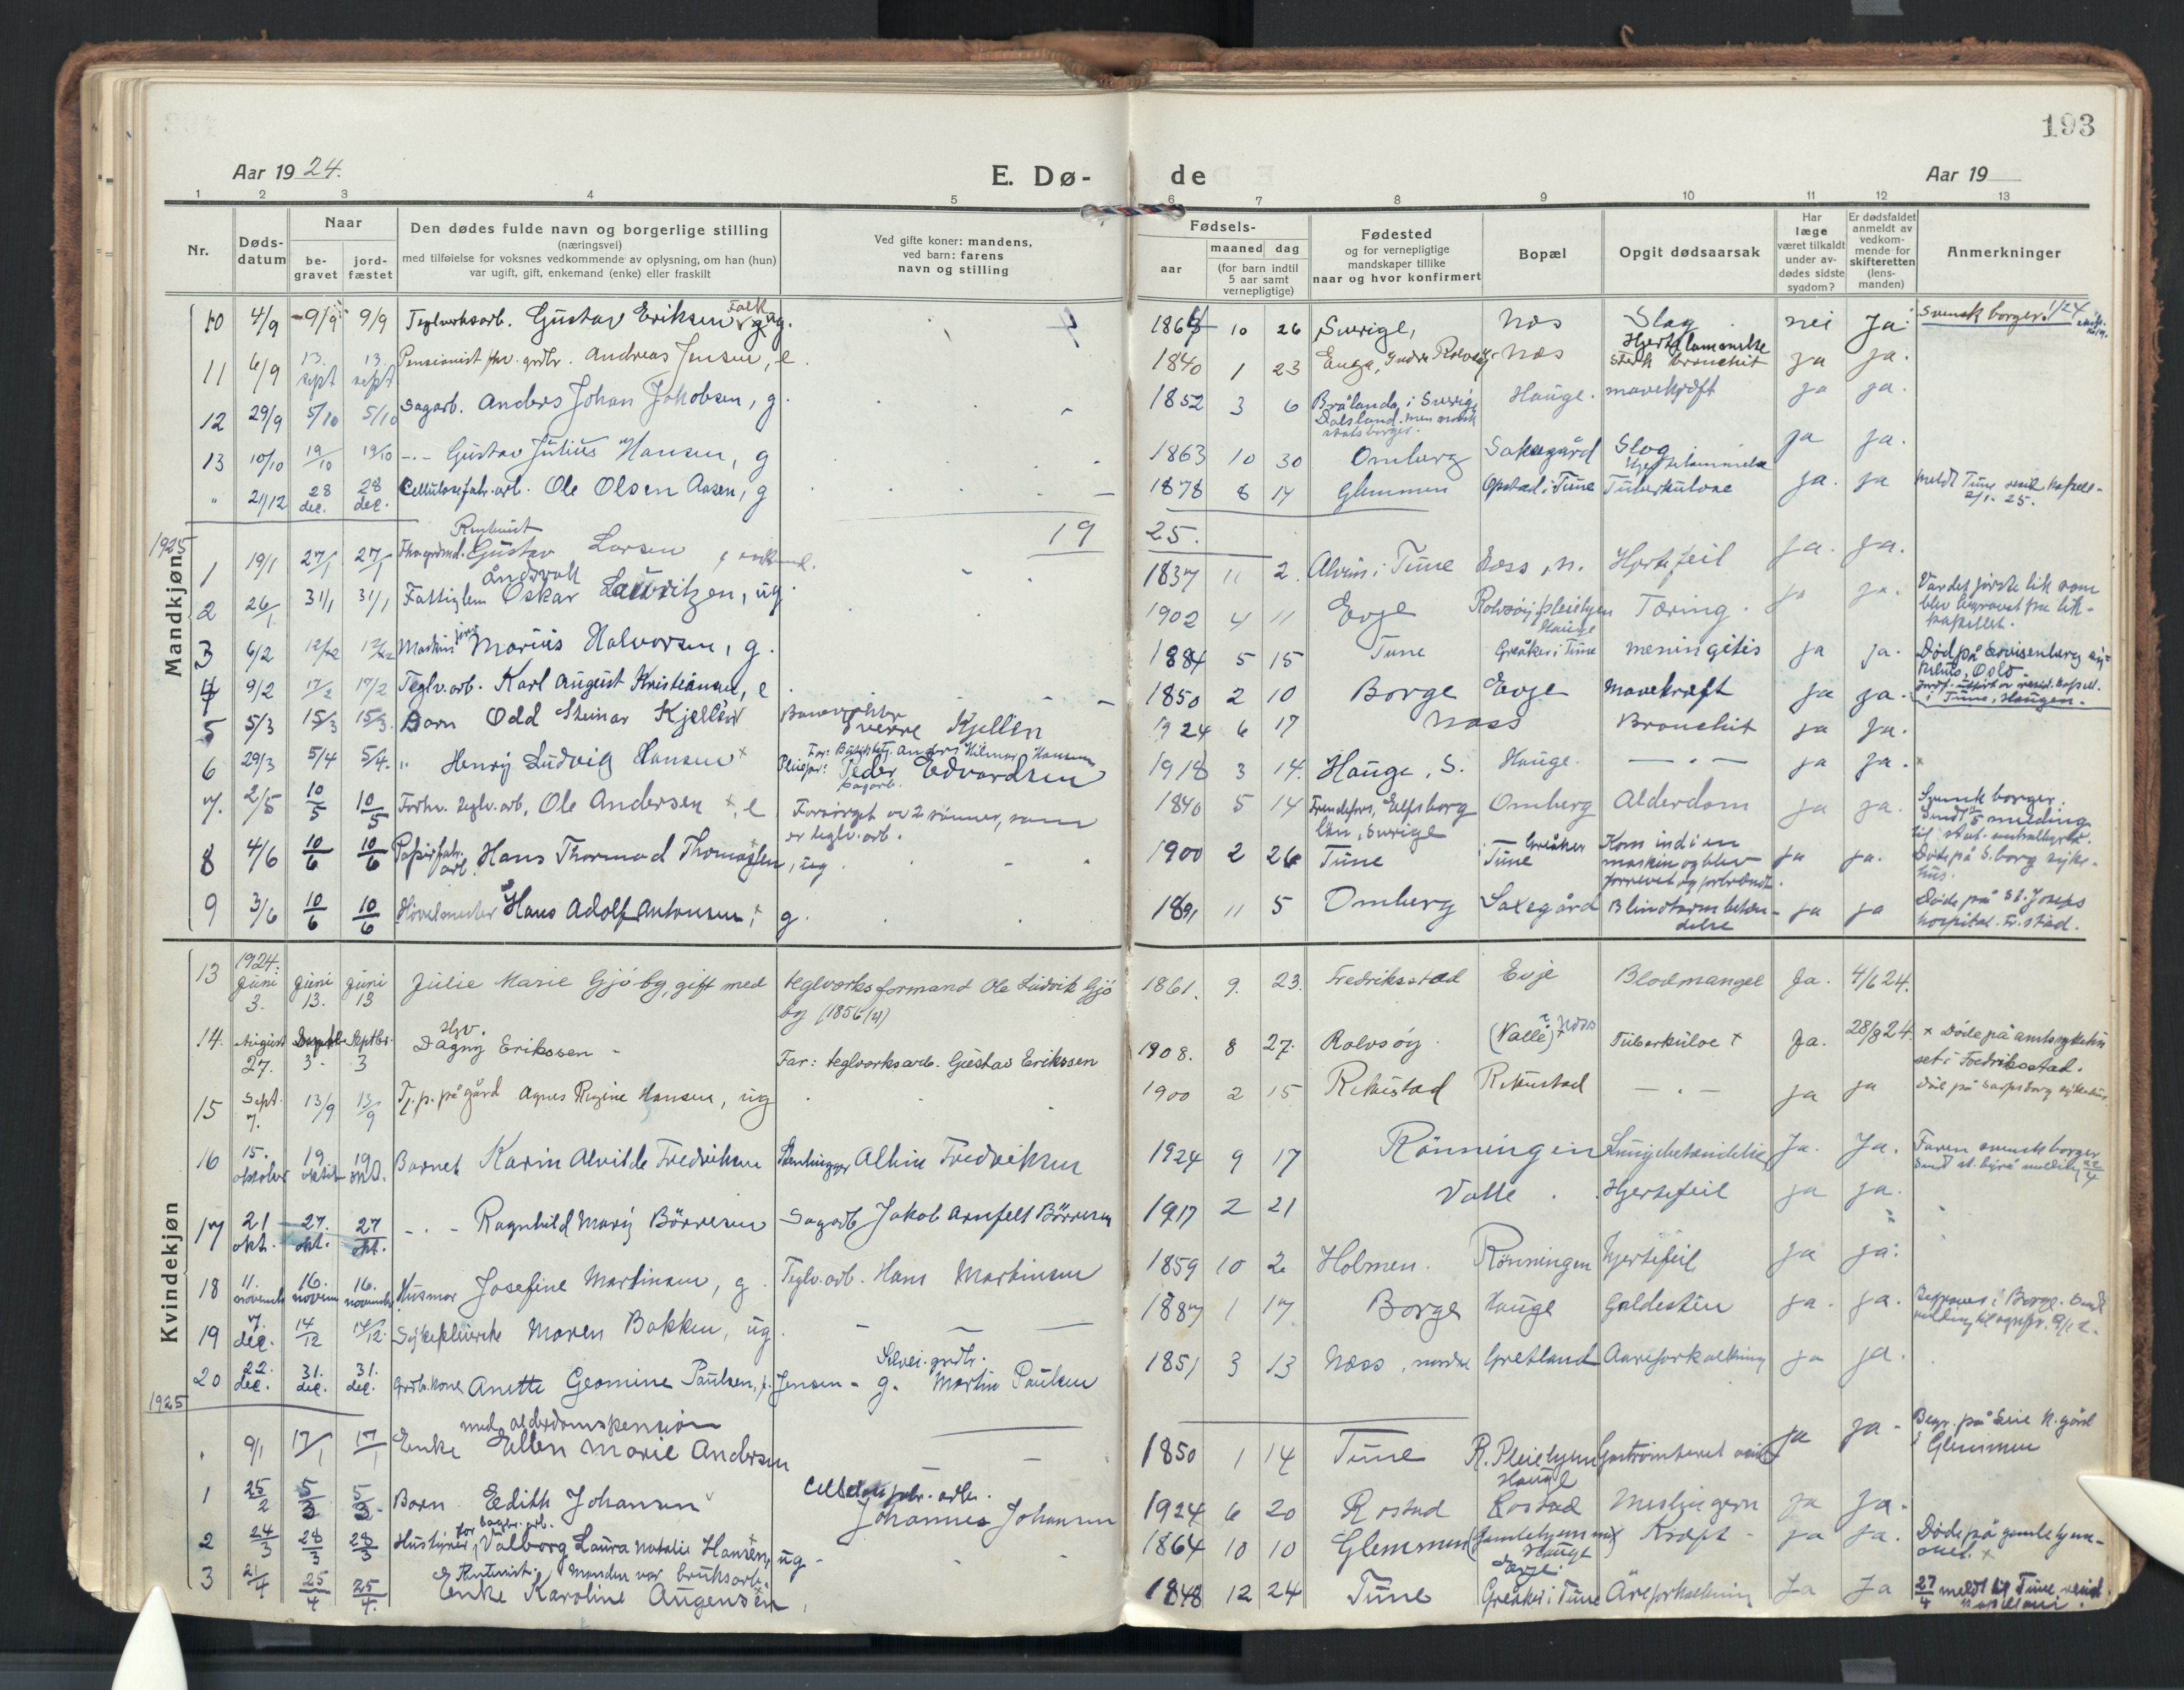 193
Aar 19 24.
E. Dø-
de
Aar 19
1 2 3 4 5 6 7 8 9 10 11 12 13
Nr.
Døds-
datum
Naar
be-
gravet
jord-
fæstet
Den dødes fulde navn og borgerlige stilling
(næringsvei)
med tilføielse for voksnes vedkommende av oplysning, om han (hun)
var ugift, gift, enkemand (enke) eller fraskilt
Ved gifte koner: mandens,
ved barn: farens
navn og stilling
Fødsels-
aar
maaned dag
(for barn indtil
5 aar samt
vernepligtige)
Fødested
og for vernepligtige
mandskaper tillike
naar og hvor konfirmert
Bopæl
Opgit dødsaarsak
Har
læge
været tilkaldt
under av-
dødes sidste
sygdom?
Er dødsfaldet
anmeldt av
vedkom-
mende for
skifteretten
(lens-
manden)
Anmerkninger
Mandkjøn
10 4/9 9/9 9/9 Teglverksarb. Gustav Eriksen Falk ug. 1864 10 26 Sverige, Næs Slag nei Ja. Svensk borger.
11 6/9 13. sept 13. sept Pensionist fhv. grdbr. Andreas Jensen, e. 1840 1 23 Enga, Yndre Rolvsøy Næs Hjertelammelse sterk bronchit ja ja.
12 29/9 5/10 5/10 Sagarb. Anders Johan Jakobsen, g. 1852 3 6 Brålanda i Sverige Dalsland. Men norsk statsborger. Hauge. mavekræft ja ja.
13 10/10 19/10 19/10 -"- Gustav Julius Hansen, g 1863 10 30 Omberg Saksegård Slag Hjertelammelse ja ja.
" 21/12 28 dec. 28 dec. Cellulosefabr.arb. Ole Olsen Aasen, g 1878 8 14 Glemmen Opstad i Tune Tuberkulose ja. ja meldt Tune resk. kapell- 2/1. 25.
1925
19 25.
1 19/1 27/1 27/1 Gustav Larsen, enkemd. 1837 11 2. Alvim i Tune Næss, n. Hjertefeil ja. ja.
2 26/1 31/1 31/1 Fattiglem åndsvak Oskar Lauritzen, ug. 1902 4 11 Evje Rolvsøy pleiehjem Hauge Tæring. ja ja. Var det første lik som blev begravet fra lik-kapellet.
3 6/2 12/2 12/2 Marius Halvorsen, g. 1884 5 15 Tune Greåker i Tune meningitis ja ja. Død på Lovisenberg sy-kehus, Oslo.
4 9/2 17/2 17/2 Teglv.arb. Karl August Kristiansen, e 1850 2 10 Borge Evje Mavekræft ja ja. i Tune, Haugen.
5 5/3 15/3 15/3. Barn Odd Steinar Kjellén Sverre Kjellén 1924 6 17 Næss Bronchit ja ja.
6 29/3 5/4 5/4. " Henry Ludvig Hansen x Far: Anders Hilmar Hansen Pleiefar: Peder Edvardsen sagarb. 1918 3 14. Hauge, S. Hauge. -"- ja ja. x
7. 2/5 10/5 10/5 Forhv. teglv.arb. Ole Andersen x, e Forsørget av 2 sønner, som er teglv.arb. 1840 5 14 Elfsborg län, Sverige Omberg Alderdom ja ja. Svensk borger. Sendt melding til stat. centralbyrå.
8 4/6 10/6 10/6 Papirfabr. arb. Hans Thormod Thomassen, ug 1900 2 26 Tune Greåker Tune Kom ind i en maskin og blev forrevet og forbrændt. ja ja. Døde på S.borg syke-hus.
9 3/6 10/6 10/6 Høvelmester Hans Adolf Antonsen, x g 1891 11 5 Omberg Saxegård Blindtarmbeten-delse ja ja Døde på St. Josephs hospital. Fr.stad.
Kvindekjøn
13 1924. Juni 3. Juni 13. Juni 13 Julie Marie Gjøby, gift med teglverksformand Ole Ludvik Gjøby (1856) 1861. 9. 23. Fredriksstad Evje Blodmangel Ja. 4/6 24.
14. August 27. 3. Septbr. 3 Dagny Erikssen - Far: teglverksarb. Gustav Erikssen 1908. 8 27. Rolvsøy (Valle) Næss Tuberkulose x Ja. 28/8 24. x Døde på amtssykehuset i Fredriksstad.
15 Sept. 7. 13/9 13/9 Tj.p. på gård Agnes Regine Hansen, ug 1900 2 15 Rekustad Rekustad -"- ja ja død på Sarpsborg sykehus.
16 15. oktober 19 oktob 19 okt. Barnet Karin Alvilde Fredriksen Albin Fredriksen 1924 9 17 Rønningen Lungebetændelse Ja. Ja. Faren svensk borger
17 21 okt. 27. okt. 27 okt. -"- Ragnhild Mary Børresen Sagarb Jakob Arnfelt Børresen 1917 2 21 Valle. Hjertefeil ja ja.
18 11. novemb 16. novem 16. novemb Husmor Josefine Martinsen, g. Teglv.arb. Hans Martinsen 1859 10 2 Holmen. Rønningen Hjertefeil ja ja.
19 7. dec. 14/12 14/12. Sykepleierske Maren Bakken, ug. 1887 1 17 Borge Hauge Galdesten ja. ja. Begraves i Borge.
20 22. dec. 31. dec. 31. dec. Grdb.kone Anette Geomine Paulsen, f. Jensen - g. Selvei.grdbr. Martin Paulsen 1851 3 13 Næss, nordre Gretland Aareforkalkning ja ja.
1925
. 9/1 17/1 17/1 Enke med alderdomspension Ellen Marie Andersen 1850 1 14 Tune R. Pleiehjem Hauge ja ja. Begr. på Leie K.gård i Glemmen
1 25/2 5/3 5/3. Barn Edith Johansen Johannes Johansen 1924 6 20 Rostad Rostad Meslingern ja ja.
2 24/3 28/3 28/3 Valborg Laura Natalie Hansen, ug - 1864 10 10 Glemmen (Gamlehjemmet Hauge) Kræft - ja ja. Døde på gamlehjem-met. x
3 21/4 25/4 25/4. Manden var bruksarb. Enke Karoline Augensen, 1848 12 24 Tune Greåker i Tune Åreforkalkning Ja Ja 27/4 meldt til Tune resid. kapellani.